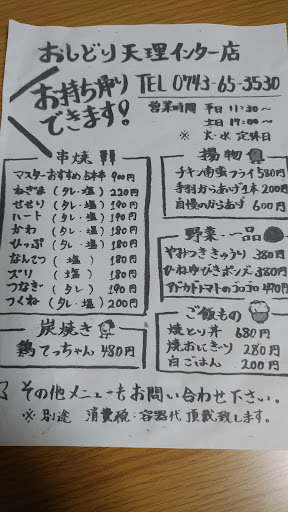 おしどり天理インター店
お持ち帰りできます!
TEL 0743-65-3530
営業時間 平日 11:30〜
土日 17:00〜
※火・水 定休日
串焼
マスターおすすめ5本串 900円
ねぎま (タレ・塩) 220円
せせり (タレ・塩) 190円
ハート (タレ・塩) 190円
かわ (タレ・塩) 180円
ひっぷ (タレ・塩) 180円
なんこつ (塩) 180円
ズリ (塩) 180円
つなぎ (タレ・塩) 190円
つくね (タレ・塩) 200円
炭焼き
鶏てっちゃん 480円
揚物
チキン南蛮フライ 580円
手羽からあげ1本 200円
自慢のからあげ 600円
野菜・一品
やみつききゅうり 380円
ひねゆびきポンズ 380円
アボカドトマトのゴロゴロ 470円
ご飯もの
焼とり丼 680円
焼おにぎり 280円
白ごはん 200円
その他メニューもお問い合わせ下さい。
※別途 消費税・容器代 頂戴致します。